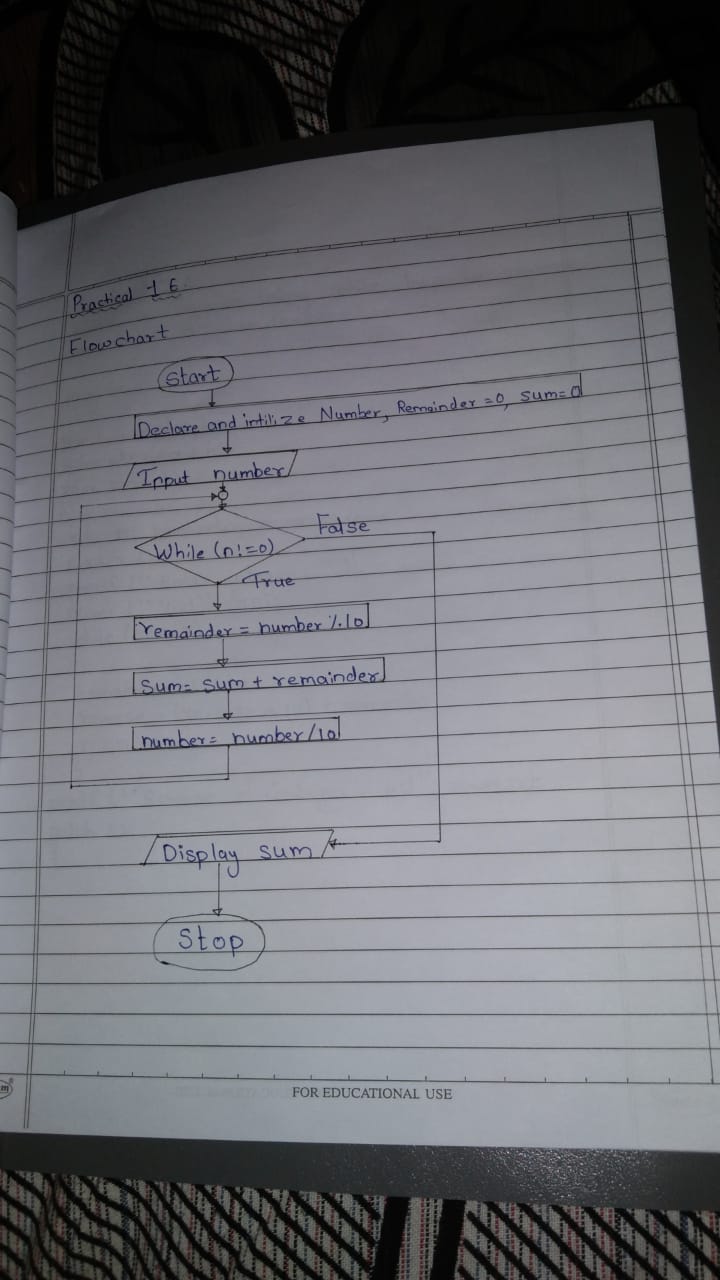 Practical 1 E
Flowchart
Start
Declare and intilize Number, Remainder =0, sum=0
Input number
While (n!=0)
False
True
remainder = number %10
Sum= sum + remainder
number= number/10
Display sum
Stop
FOR EDUCATIONAL USE